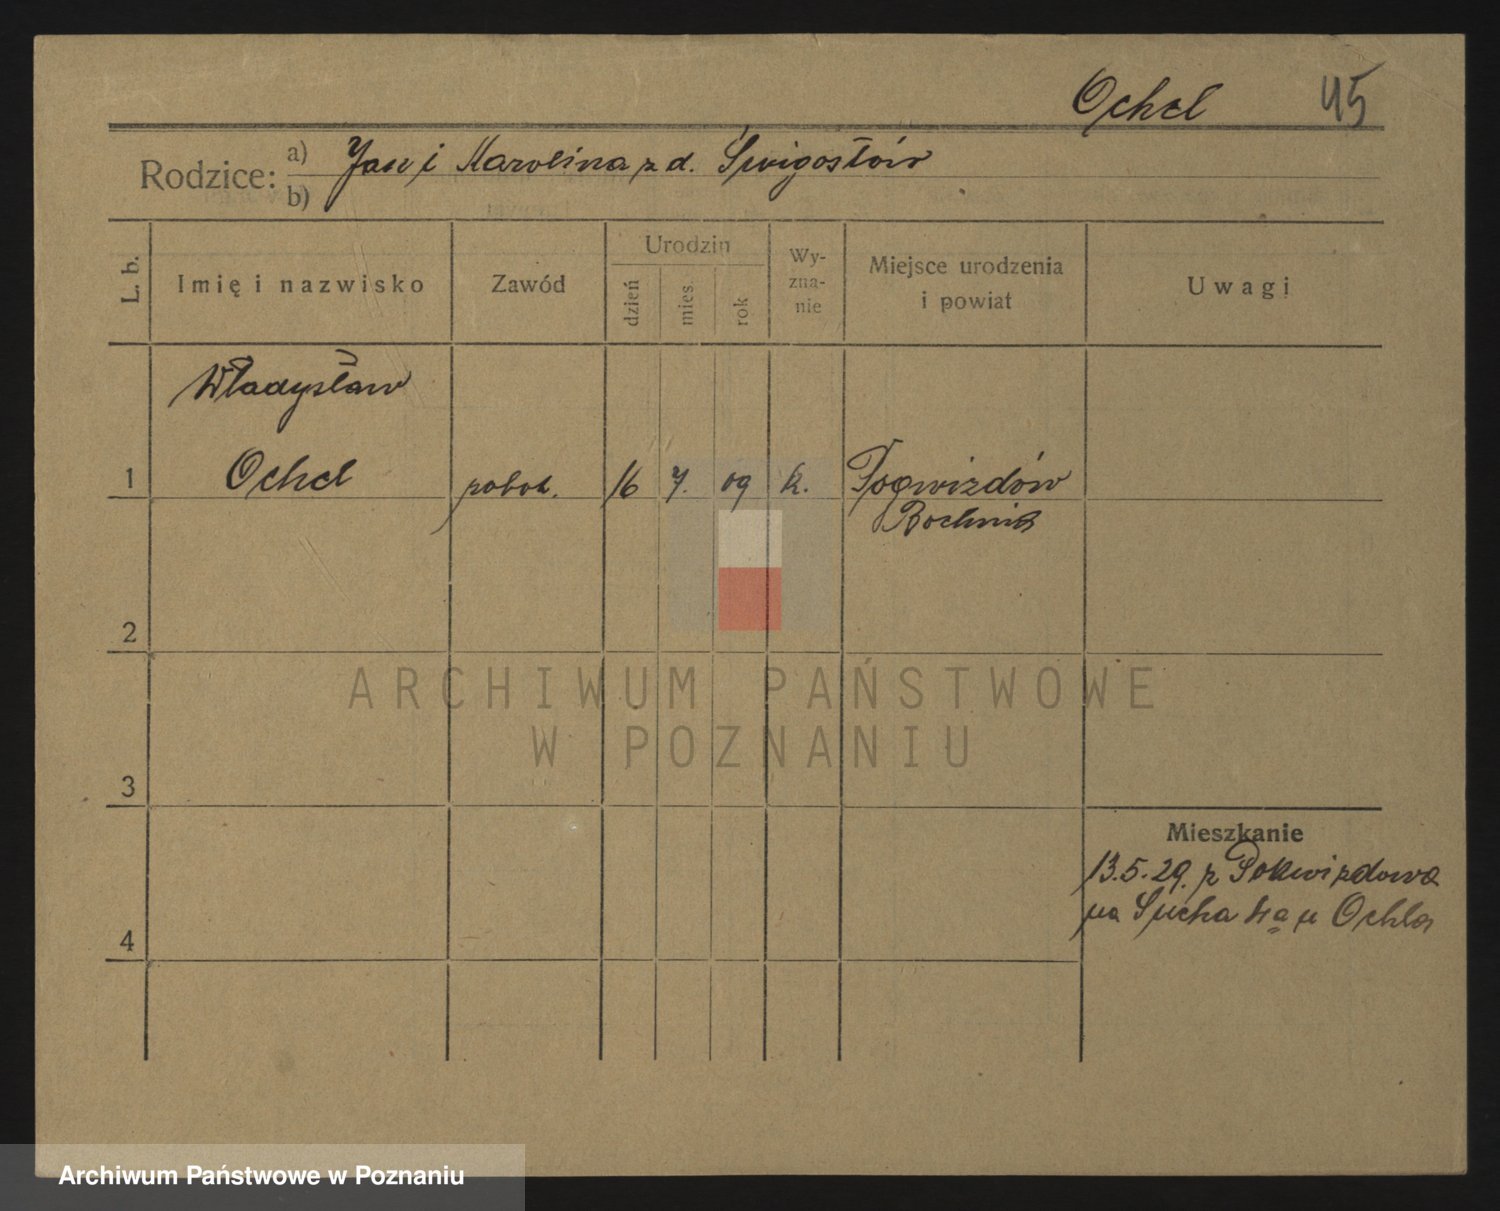 Ochel 45
Rodzice: a) Jan i Karolina z d. Świgostów
b)
L. b.
Imię i nazwisko
Zawód
Urodzin
dzień
mies.
rok
Wy-
zna-
nie
Miejsce urodzenia
i powiat
Uwagi
Władysław
1 Ochel robot. 16 7. 09 k. Pogwizdów
Bochnia
2
3
4
Mieszkanie
13.5.29. z Pokwizdowa
na Sucha u Ochla
ARCHIWUM PAŃSTWOWE
W POZNANIU
Archiwum Państwowe w Poznaniu